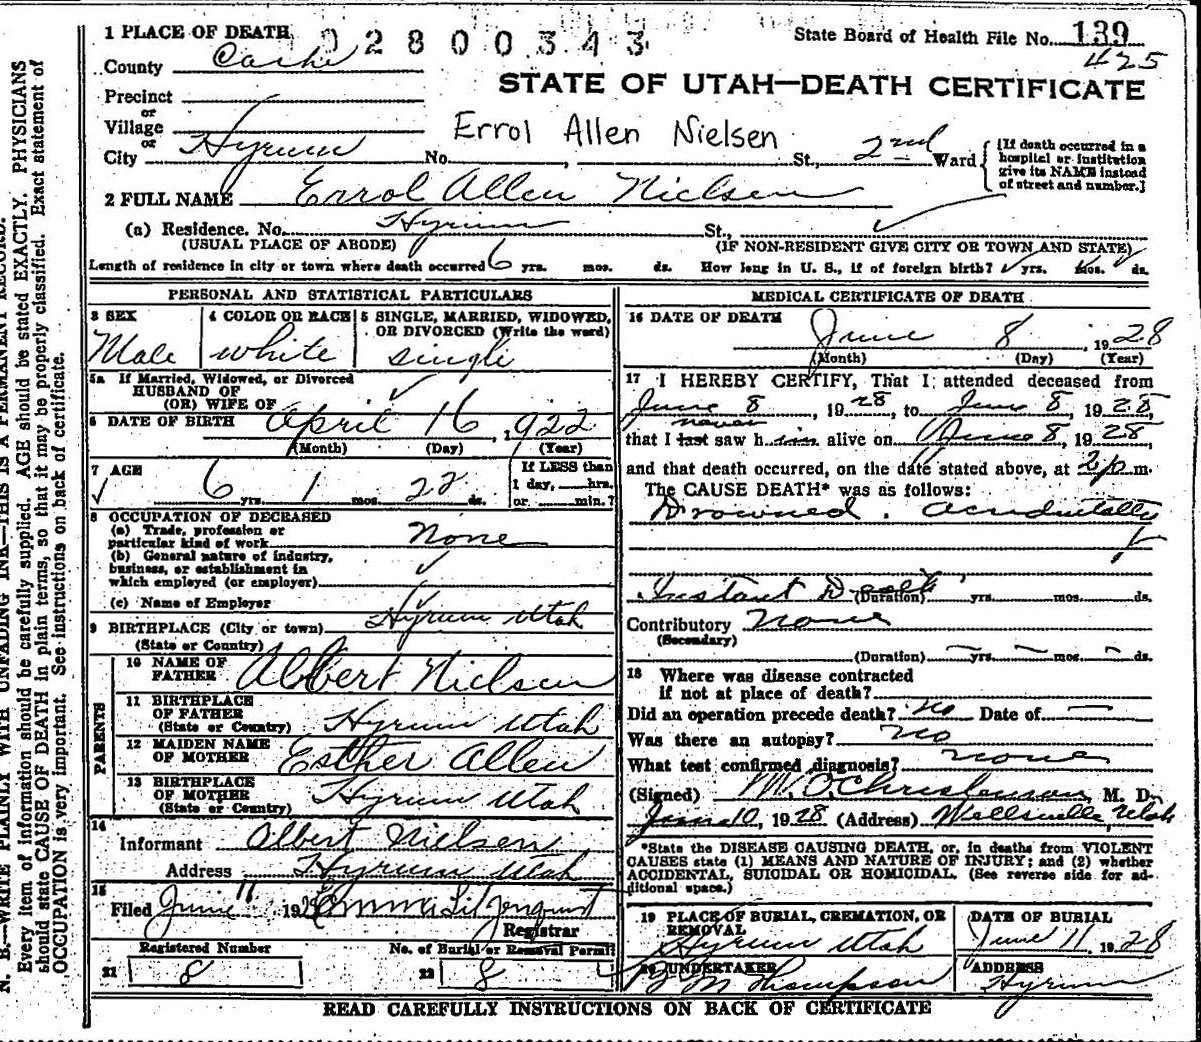 1 PLACE OF DEATH 02800343 State Board of Health File No. 139
425
County Cache
STATE OF UTAH—DEATH CERTIFICATE
Precinct
or
Village
Errol Allen Nielsen
or
City Hyrum No. , St., 2nd Ward
[If death occurred in a hospital or institution give its NAME instead of street and number.]
2 FULL NAME Errol Allen Nielsen
(a) Residence. No. Hyrum St.,
(USUAL PLACE OF ABODE) (IF NON-RESIDENT GIVE CITY OR TOWN AND STATE)
Length of residence in city or town where death occurred 6 yrs. mos. ds. How long in U. S., if of foreign birth? yrs. mos. ds.
PERSONAL AND STATISTICAL PARTICULARS
3 SEX 4 COLOR OR RACE 5 SINGLE, MARRIED, WIDOWED, OR DIVORCED (Write the word)
Male white single
5a If Married, Widowed, or Divorced
HUSBAND OF
(OR) WIFE OF
6 DATE OF BIRTH April 16, 1922
(Month) (Day) (Year)
7 AGE If LESS than
6 yrs. 1 mos. 22 ds. 1 day, hrs.
or min.?
8 OCCUPATION OF DECEASED
(a) Trade, profession or
particular kind of work None
(b) General nature of industry,
business, or establishment in
which employed (or employer)
(c) Name of Employer
9 BIRTHPLACE (City or town) Hyrum Utah
(State or Country)
PARENTS
10 NAME OF
FATHER Albert Nielsen
11 BIRTHPLACE
OF FATHER
(State or Country) Hyrum Utah
12 MAIDEN NAME
OF MOTHER Esther Allen
13 BIRTHPLACE
OF MOTHER
(State or Country) Hyrum Utah
14
Informant Albert Nielsen
Address Hyrum Utah
15
Filed June 11 192 Emma
Registrar
Registered Number No. of Burial or Removal Permit
21 8 22 8
MEDICAL CERTIFICATE OF DEATH
16 DATE OF DEATH
June 8, 1928
(Month) (Day) (Year)
17 I HEREBY CERTIFY, That I attended deceased from
June 8, 1928, to June 8, 1928,
never
that I last saw h im alive on June 8, 1928,
and that death occurred, on the date stated above, at m.
The CAUSE DEATH* was as follows:
Drowned. accidentally
Instant Death
(Duration) yrs. mos. ds.
Contributory None
(Secondary)
(Duration) yrs. mos. ds.
18 Where was disease contracted
if not at place of death?
Did an operation precede death? No Date of
Was there an autopsy? No
What test confirmed diagnosis? none
(Signed) M. O. Christenson, M. D.
June 10, 1928 (Address) Wellsville, Utah
*State the DISEASE CAUSING DEATH, or, in deaths from VIOLENT
CAUSES state (1) MEANS AND NATURE OF INJURY; and (2) whether
ACCIDENTAL, SUICIDAL OR HOMICIDAL. (See reverse side for ad-
ditional space.)
19 PLACE OF BURIAL, CREMATION, OR
REMOVAL
Hyrum Utah
DATE OF BURIAL
June 11 1928
20 UNDERTAKER
Thompson
ADDRESS
Hyrum
READ CAREFULLY INSTRUCTIONS ON BACK OF CERTIFICATE
N. B.—WRITE PLAINLY WITH UNFADING INK—THIS IS A PERMANENT RECORD.
Every item of information should be carefully supplied. AGE should be stated EXACTLY. PHYSICIANS
should state CAUSE OF DEATH in plain terms, so that it may be properly classified. Exact statement of
OCCUPATION is very important. See instructions on back of certificate.